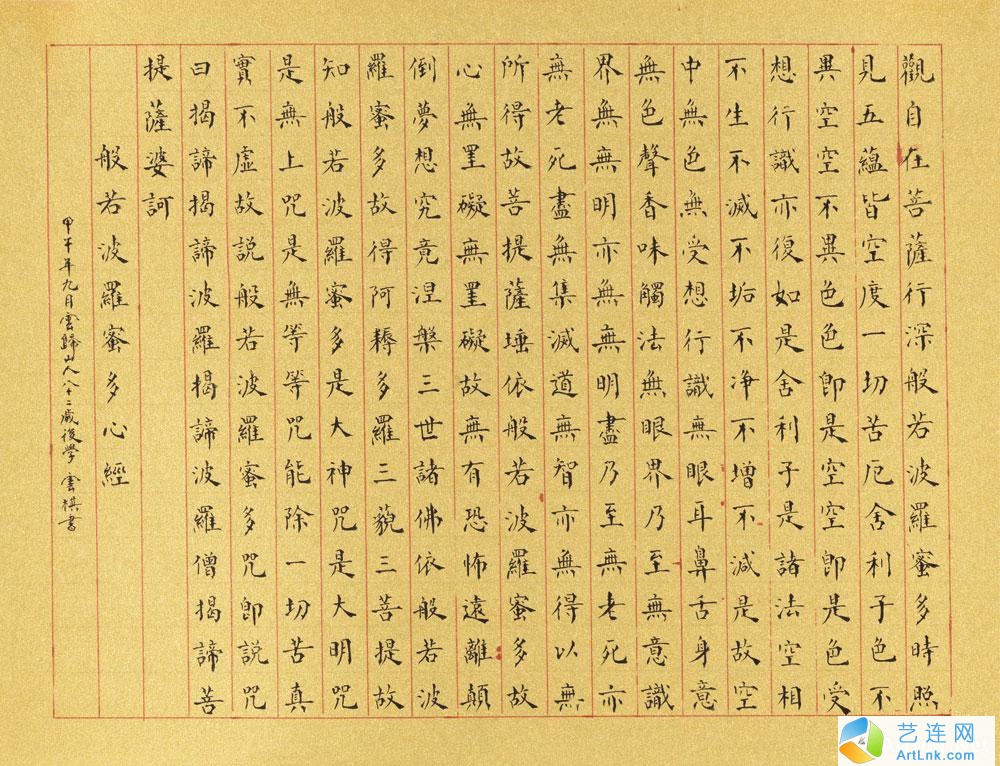 觀自在菩薩行深般若波羅蜜多時照
見五蘊皆空度一切苦厄舍利子色不
異空空不異色色即是空空即是色受
想行識亦復如是舍利子是諸法空相
不生不滅不垢不净不增不減是故空
中無色無受想行識無眼耳鼻舌身意
無色聲香味觸法無眼界乃至無意識
界無無明亦無無明盡乃至無老死亦
無老死盡無集滅道無智亦無得以無
所得故菩提薩埵依般若波羅蜜多故
心無罣礙無罣礙故無有恐怖遠離顛
倒夢想究竟涅槃三世諸佛依般若波
羅蜜多故得阿耨多羅三藐三菩提故
知般若波羅蜜多是大神咒是大明咒
是無上咒是無等等咒能除一切苦真
實不虛故説般若波羅蜜多咒即説咒
曰揭諦揭諦波羅揭諦波羅僧揭諦菩
提薩婆訶
般若波羅蜜多心經
甲午年九月雲歸山人八十二歲後學 雲棋書
艺连网
ArtLnk.com